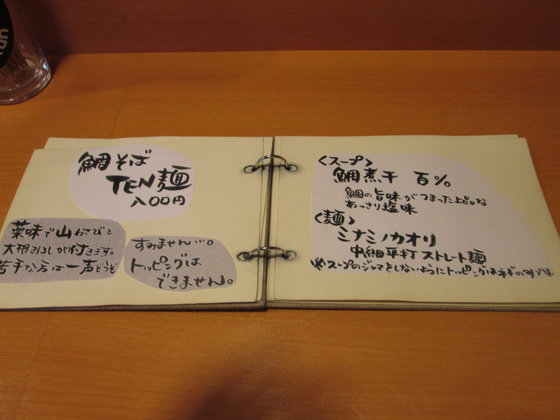 鯛そば
TEN麺
八00円
薬味で山わさびと
大根おろしが付きます。
苦手な方は一声どうぞ
すみません…。
トッピングは
できません。
〈スープ〉
鯛煮干 百%
鯛の旨味がつまった上品な
あっさり塩味
〈麺〉
ミナミノカオリ
中細平打ストレート麺
※スープのジャマをしないようにトッピングはネギのみです